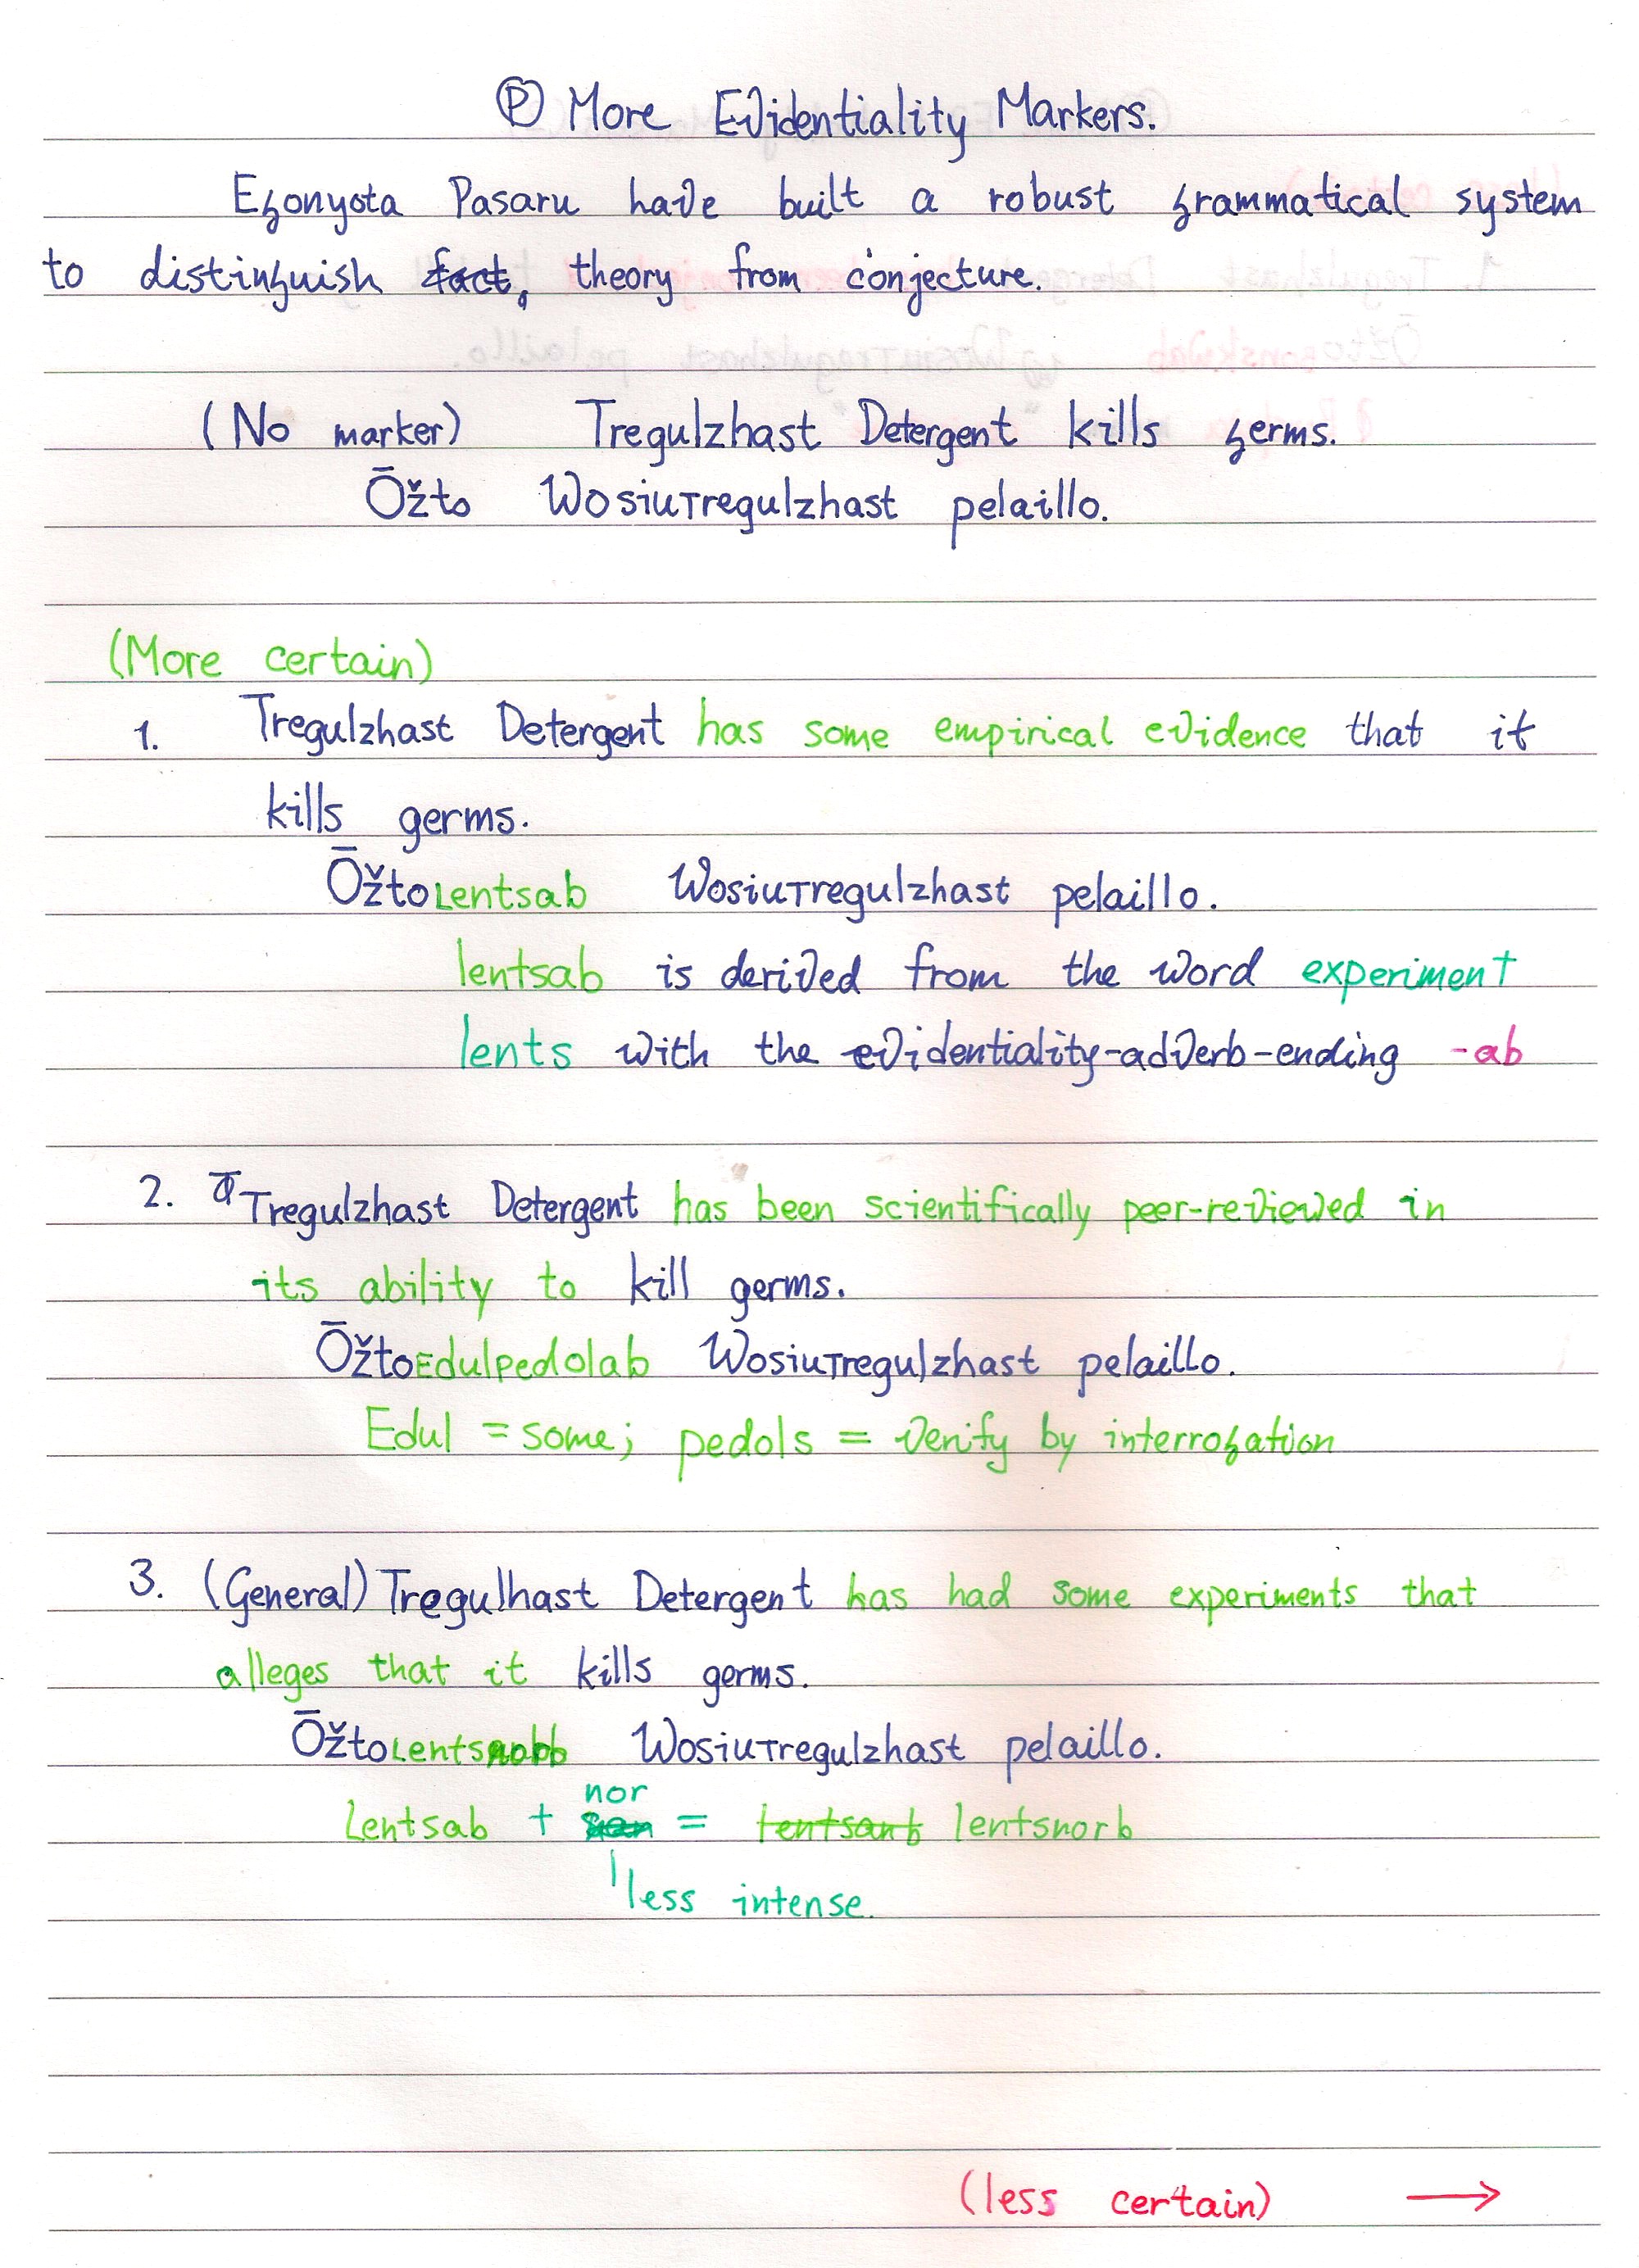 Ⓟ More Evidentiality Markers.
Egonyota Pasaru have built a robust grammatical system
to distinguish fact, theory from conjecture.
(No marker) Tregulzhast Detergent kills germs.
Ōžto Wosiuᴛregulzhast pelaillo.
(More certain)
1. Tregulzhast Detergent has some empirical evidence that it
kills germs.
Ōžtoʟentsab Wosiuᴛregulzhast pelaillo.
lentsab is derived from the word experiment
lents with the evidentiality-adverb-ending -ab
2. Tregulzhast Detergent has been scientifically peer-reviewed in
its ability to kill germs.
Ōžtoᴇdulpedolab Wosiuᴛregulzhast pelaillo.
Edul = some; pedols = verify by interrogation
3. (General) Tregulhast Detergent has had some experiments that
alleges that it kills germs.
Ōžtoʟentsnobb Wosiuᴛregulzhast pelaillo.
nor
Lentsab + = lentsanb lentsnorb
less intense.
(less certain) →